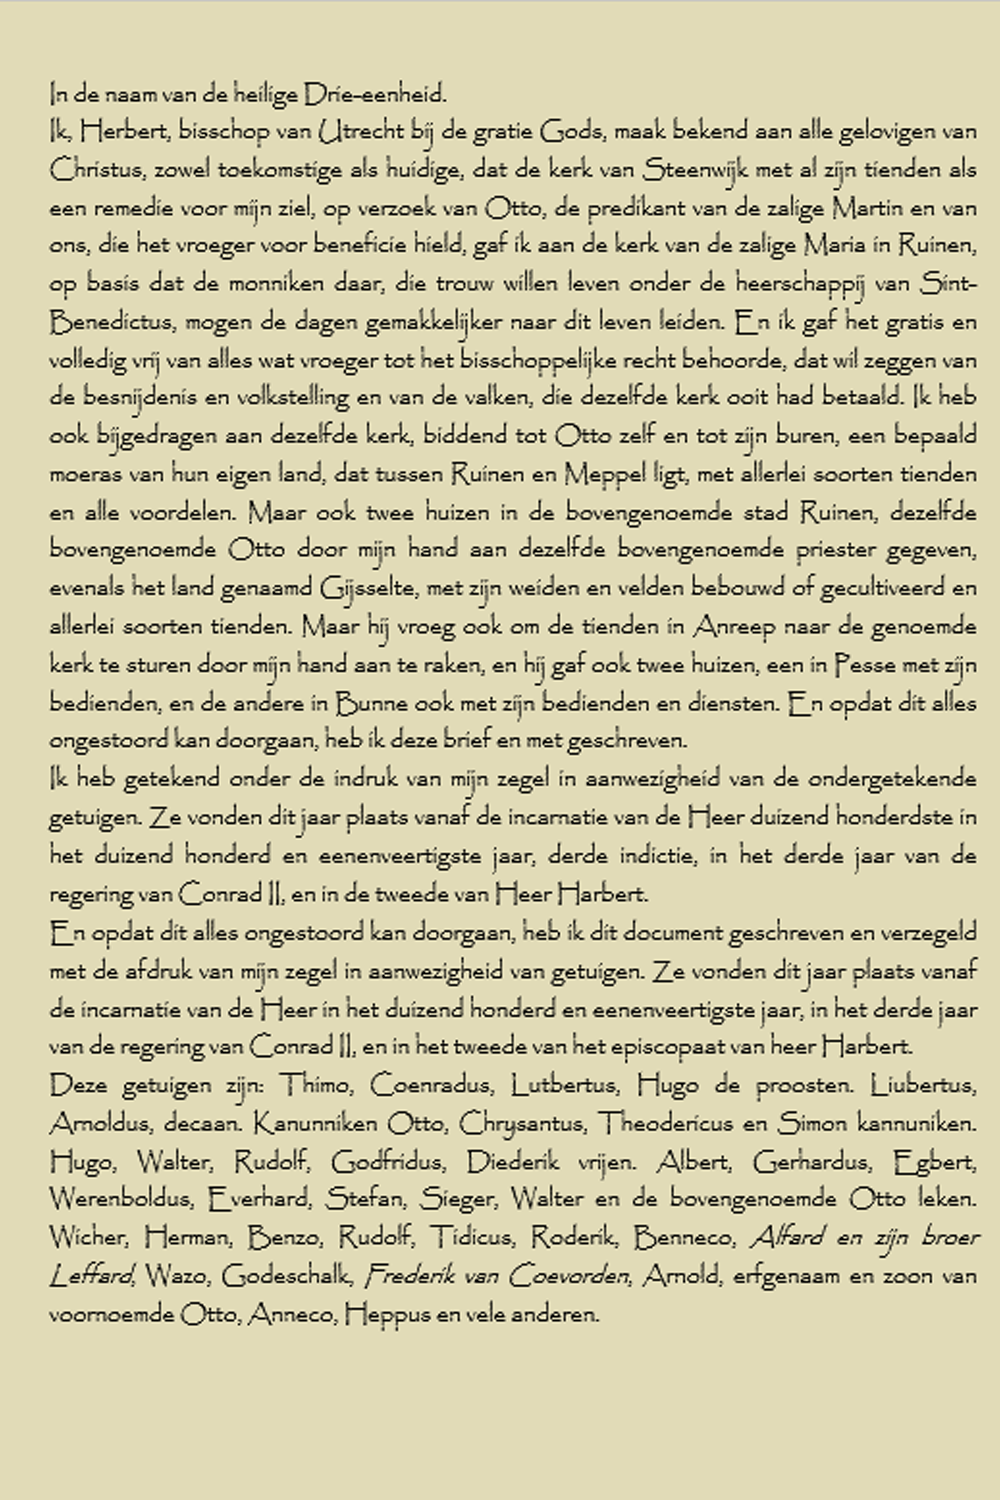 In de naam van de heilige Drie-eenheid.
Ik, Herbert, bisschop van Utrecht bij de gratie Gods, maak bekend aan alle gelovigen van
Christus, zowel toekomstige als huidige, dat de kerk van Steenwijk met al zijn tienden als
een remedie voor mijn ziel, op verzoek van Otto, de predikant van de zalige Martin en van
ons, die het vroeger voor beneficie hield, gaf ik aan de kerk van de zalige Maria in Ruinen,
op basis dat de monniken daar, die trouw willen leven onder de heerschappij van Sint-
Benedictus, mogen de dagen gemakkelijker naar dit leven leiden. En ik gaf het gratis en
volledig vrij van alles wat vroeger tot het bisschoppelijke recht behoorde, dat wil zeggen van
de besnijdenis en volkstelling en van de valken, die dezelfde kerk ooit had betaald. Ik heb
ook bijgedragen aan dezelfde kerk, biddend tot Otto zelf en tot zijn buren, een bepaald
moeras van hun eigen land, dat tussen Ruinen en Meppel ligt, met allerlei soorten tienden
en alle voordelen. Maar ook twee huizen in de bovengenoemde stad Ruinen, dezelfde
bovengenoemde Otto door mijn hand aan dezelfde bovengenoemde priester gegeven,
evenals het land genaamd Gijsselte, met zijn weiden en velden bebouwd of gecultiveerd en
allerlei soorten tienden. Maar hij vroeg ook om de tienden in Anreep naar de genoemde
kerk te sturen door mijn hand aan te raken, en hij gaf ook twee huizen, een in Pesse met zijn
bedienden, en de andere in Bunne ook met zijn bedienden en diensten. En opdat dit alles
ongestoord kan doorgaan, heb ik deze brief en met geschreven.
Ik heb getekend onder de indruk van mijn zegel in aanwezigheid van de ondergetekende
getuigen. Ze vonden dit jaar plaats vanaf de incarnatie van de Heer duizend honderdste in
het duizend honderd en eenenveertigste jaar, derde indictie, in het derde jaar van de
regering van Conrad II, en in de tweede van Heer Harbert.
En opdat dit alles ongestoord kan doorgaan, heb ik dit document geschreven en verzegeld
met de afdruk van mijn zegel in aanwezigheid van getuigen. Ze vonden dit jaar plaats vanaf
de incarnatie van de Heer in het duizend honderd en eenenveertigste jaar, in het derde jaar
van de regering van Conrad II, en in het tweede van het episcopaat van heer Harbert.
Deze getuigen zijn: Thimo, Coenradus, Lutbertus, Hugo de proosten. Liubertus,
Arnoldus, decaan. Kanunniken Otto, Chrysantus, Theodericus en Simon kannuniken.
Hugo, Walter, Rudolf, Godfridus, Diederik vrijen. Albert, Gerhardus, Egbert,
Werenboldus, Everhard, Stefan, Sieger, Walter en de bovengenoemde Otto leken.
Wicher, Herman, Benzo, Rudolf, Tidicus, Roderik, Benneco, Alfard en zijn broer
Leffard, Wazo, Godeschalk, Frederik van Coevorden, Arnold, erfgenaam en zoon van
voornoemde Otto, Anneco, Heppus en vele anderen.